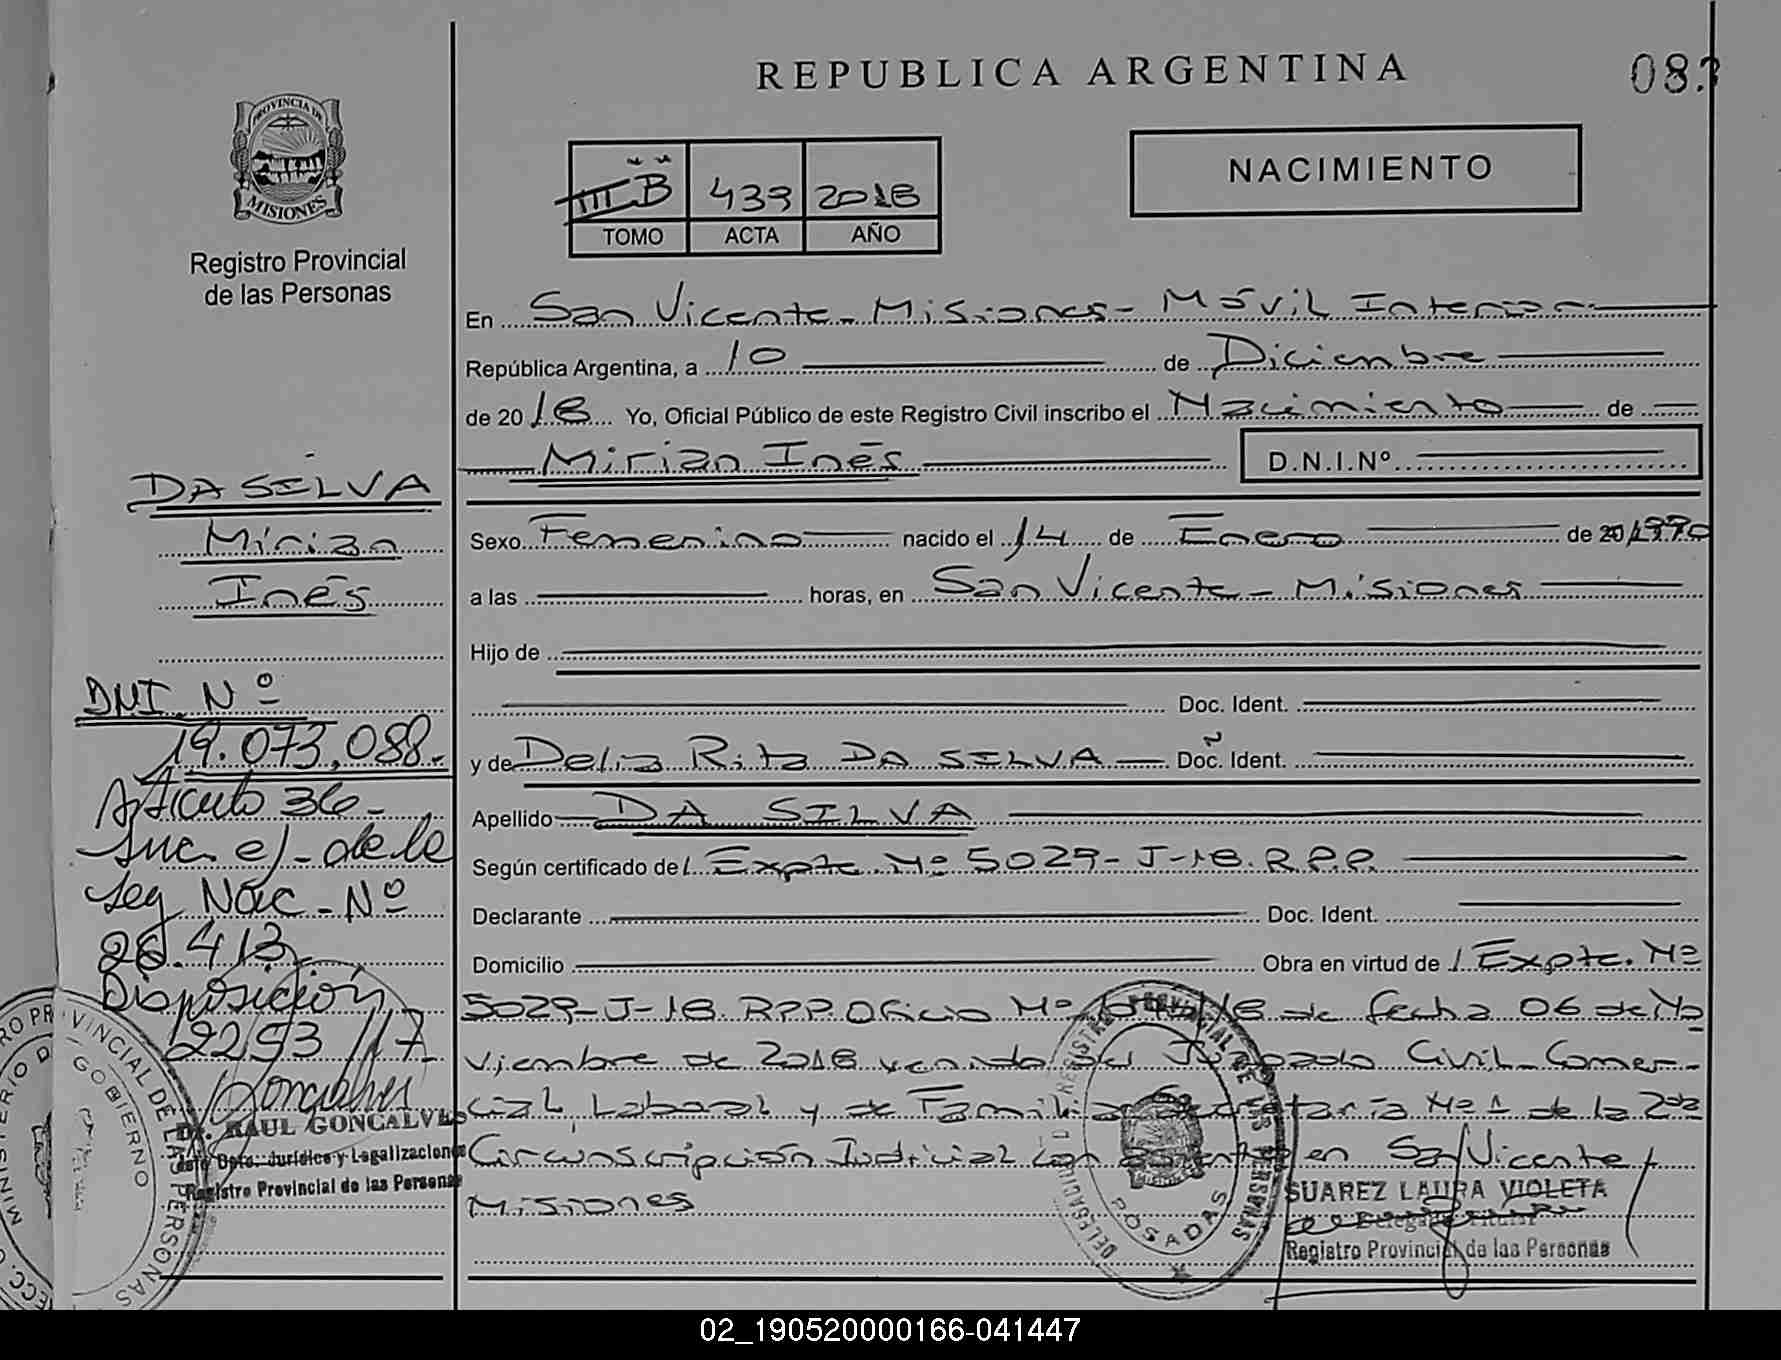 REPUBLICA ARGENTINA
083
PROVINCIA DE
MISIONES
Registro Provincial
de las Personas
III B 439 2018
TOMO ACTA AÑO
NACIMIENTO
En San Vicente - Misiones - Móvil Interior
República Argentina, a 10 de Diciembre
de 2018 Yo, Oficial Público de este Registro Civil inscribo el Nacimiento de
Mirian Inés D.N.I.Nº
Sexo Femenino nacido el 14 de Enero de 1990
a las horas, en San Vicente - Misiones
Hijo de
Doc. Ident.
y de Delia Rita DA SILVA Doc. Ident.
Apellido DA SILVA
Según certificado de / Expte. Nº 5029-J-18. R.P.P.
Declarante Doc. Ident.
Domicilio Obra en virtud de / Expte. Nº
5029-J-18. RPP. Oficio Nº /18 de fecha 06 de No
viembre de 2018 venido del Juzgado Civil Comer-
cial, Laboral y de Familia Secretaría Nº 1 de la 2da
Circunscripción Judicial con asiento en San Vicente
Misiones
DA SILVA
Mirian
Inés
DNI Nº
19.073.088.-
Artículo 36-
Inc. e)- de la
Ley Nac - Nº
26.413
Disposición
2293/17
Goncalves
Dr. RAUL GONCALVES
Jefe Dpto. Jurídico y Legalizaciones
Registro Provincial de las Personas
REGISTRO PROVINCIAL DE LAS PERSONAS
MINISTERIO DE GOBIERNO
DELEGACION REGISTRO PROVINCIAL DE LAS PERSONAS
POSADAS
SUAREZ LAURA VIOLETA
Delegada Titular
Registro Provincial de las Personas
02_190520000166-041447